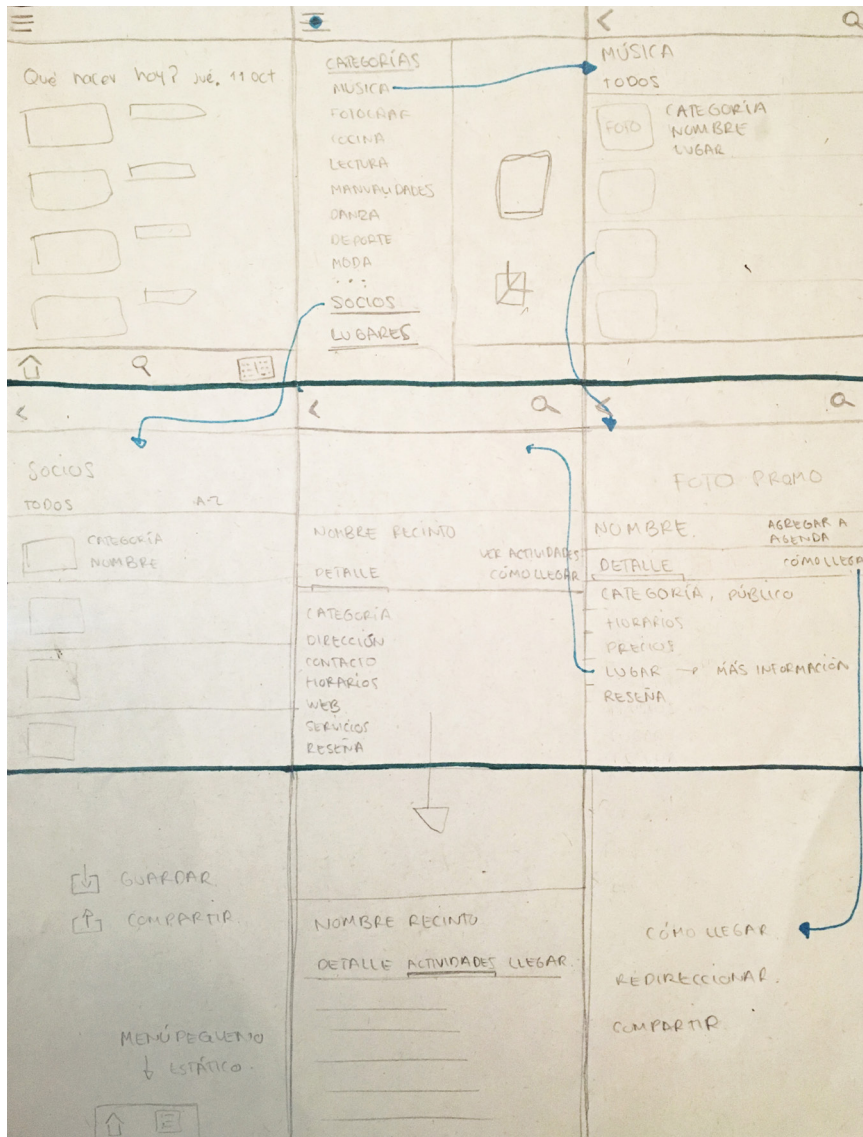 Qué hacer hoy? jue, 11 oct
CATEGORÍAS
MUSICA
FOTOGRAF
COCINA
LECTURA
MANUALIDADES
DANZA
DEPORTE
MODA
...
SOCIOS
LUGARES
MÚSICA
TODOS
FOTO
CATEGORÍA
NOMBRE
LUGAR
SOCIOS
TODOS A-Z
CATEGORÍA
NOMBRE
NOMBRE RECINTO
VER ACTIVIDADES
DETALLE CÓMO LLEGAR
CATEGORÍA
DIRECCIÓN
CONTACTO
HORARIOS
WEB
SERVICIOS
RESEÑA
FOTO PROMO
NOMBRE. AGREGAR A
AGENDA
DETALLE CÓMO LLEGAR
CATEGORÍA, PÚBLICO
HORARIOS
PRECIOS
LUGAR → MÁS INFORMACIÓN
RESEÑA
GUARDAR
COMPARTIR
MENÚ PEQUEÑO
↓ ESTÁTICO.
NOMBRE RECINTO
DETALLE ACTIVIDADES LLEGAR.
CÓMO LLEGAR
REDIRECCIONAR.
COMPARTIR